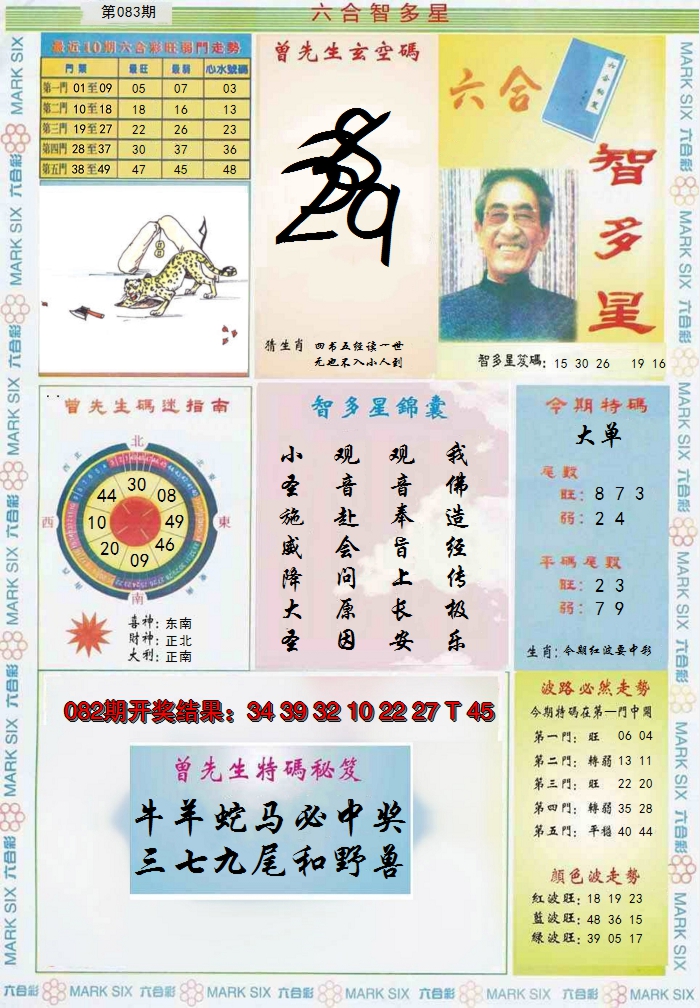 第083期
六合智多星
最近10期六合彩旺弱門走勢
門類 最旺 最弱 心水號碼
第一門 01至09 05 07 03
第二門 10至18 18 16 13
第三門 19至27 22 26 23
第四門 28至37 30 37 36
第五門 38至49 47 45 48
曾先生玄空碼
猜生肖 四书五经读一世
无也不入小人到
六合
智多星
智多星笈碼: 15 30 26 19 16
曾先生碼迷指南
北
西
東
南
44 30 08
10 49
20 09 46
喜神: 东南
財神: 正北
大利: 正南
智多星錦囊
我佛造经传极乐
观音奉旨上长安
观音赴会问原因
小圣施威降大圣
今期特碼
大单
尾數
旺: 8 7 3
弱: 2 4
平碼尾數
旺: 2 3
弱: 7 9
生肖: 今期红波要中彩
082期开奖结果: 34 39 32 10 22 27 T 45
曾先生特碼秘笈
牛羊蛇马必中奖
三七九尾和野兽
波路必然走勢
今期特碼在第一門中開
第一門: 旺 06 04
第二門: 轉弱 13 11
第三門: 旺 22 20
第四門: 轉弱 35 28
第五門: 平穩 40 44
顏色波走勢
紅波旺: 18 19 23
藍波旺: 48 36 15
綠波旺: 39 05 17
六合彩 MARK SIX 六合彩 MARK SIX 六合彩 MARK SIX 六合彩 MARK SIX 六合彩 MARK SIX